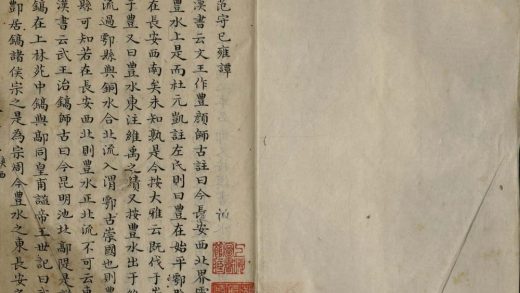 范守已雍譚
漢書云文王作豐顏師古註曰今長安西北界靈
豐水上是而杜元凱註左氏則曰豐在始平鄠
在長安西南矣未知孰是今按大雅云既伐于
于豐又曰豐水東注維禹之績又按豐水出于
流過鄠縣與銅水合北流入渭鄠古崇國也則豐
縣可知若在長安西北則豐水正北流不可云東
漢書云武王治鎬師古曰今昆明池北鄗陂是
鎬在上林苑中鎬與鄗同皇甫謐帝王世記曰
鄷居鎬諸侯宗之是為宗周今豐水之東長安之